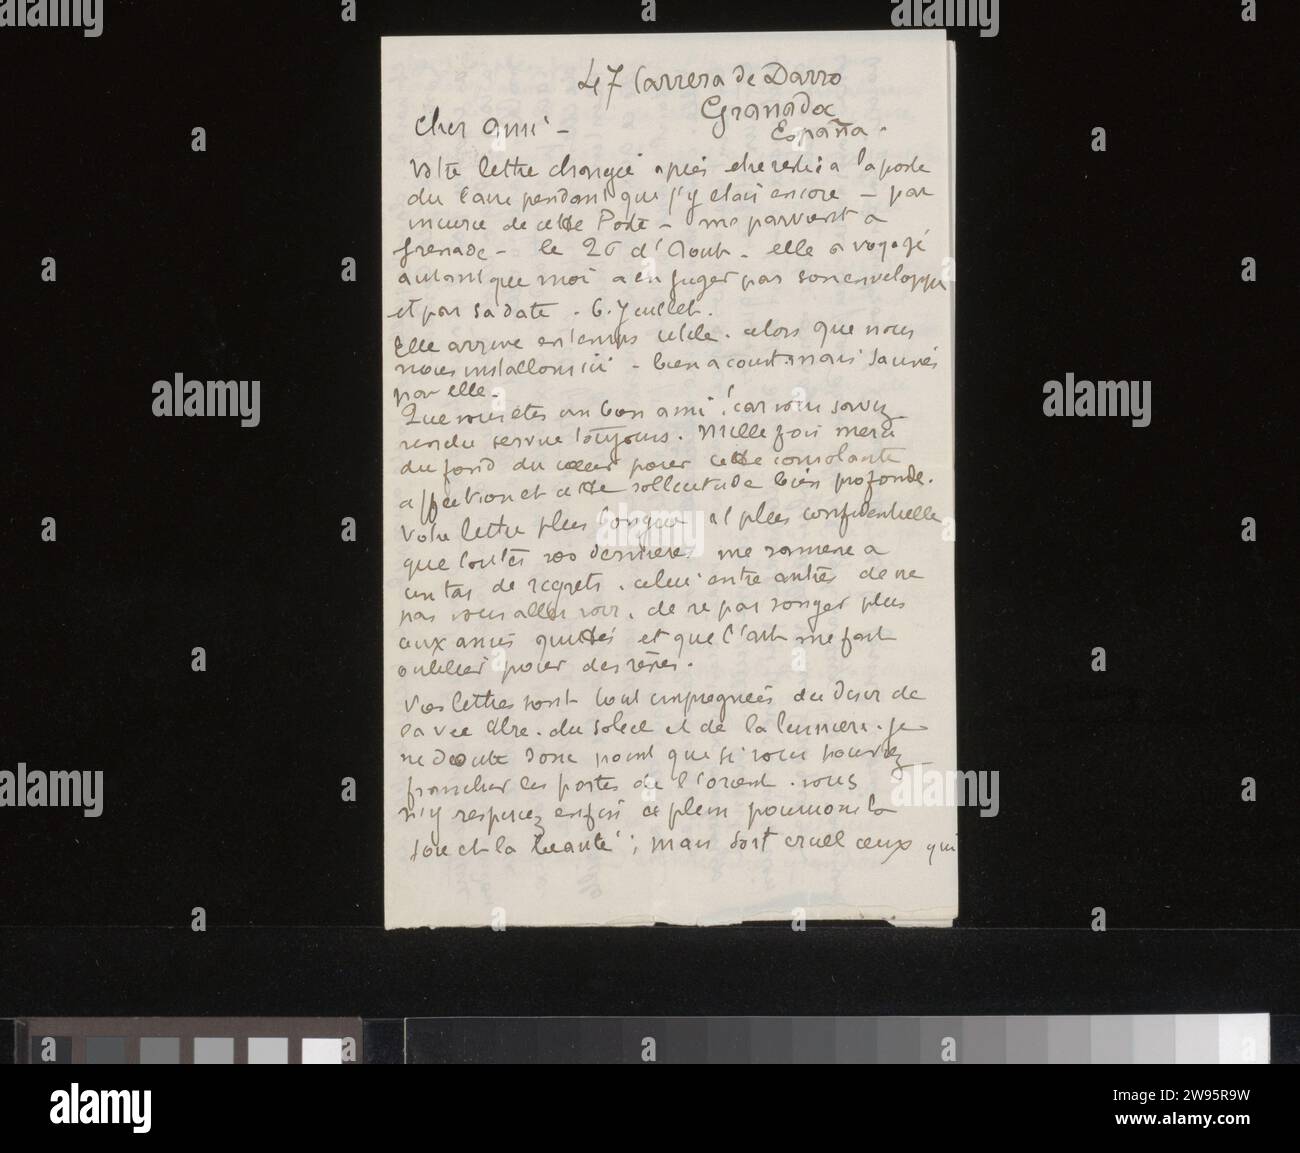 47 Carrera de Darro
Granada
España.
Cher ami -
Votre lettre chargée après être restée à la poste
du Caire pendant que j'y étais encore - par
incurie de cette Poste - me parvient à
Grenade - le 26 d'Aout. elle a voyagé
autant que moi a en juger par son enveloppe
et par sa date. 6. Juillet.
Elle arrive en temps utile. alors que nous
nous installons ici - bien a court. mais sauvés
par elle.
Que vous êtes un bon ami! car vous savez
rendre service toujours. Mille fois merci
du fond du coeur pour cette consolante
affection et cette sollicitude bien profonde.
Votre lettre plus longue et plus confidentielle
que toutes vos dernières me ramene a
un tas de regrets. celui entre autres de ne
pas vous aller voir. de ne pas songer plus
aux amis quittés et que l'art me fait
oublier pour des rêves.
Vos lettres sont tout impregnées du désir de
la vie libre. du soleil et de la lumiere. je
ne doute donc point que si vous pouviez
francher les portes de l'orient. vous
n'y respiriez enfin a plein poumons la
joie et la beauté; mais sort cruel ceux qui
alamy
alamy
Image ID: 2W95R9W
www.alamy.com